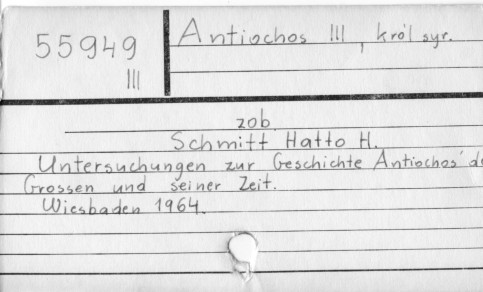 55949
III
Antiochos III, król syr.
zob.
Schmitt Hatto H.
Untersuchungen zur Geschichte Antiochos'
Grossen und seiner Zeit.
Wiesbaden 1964.